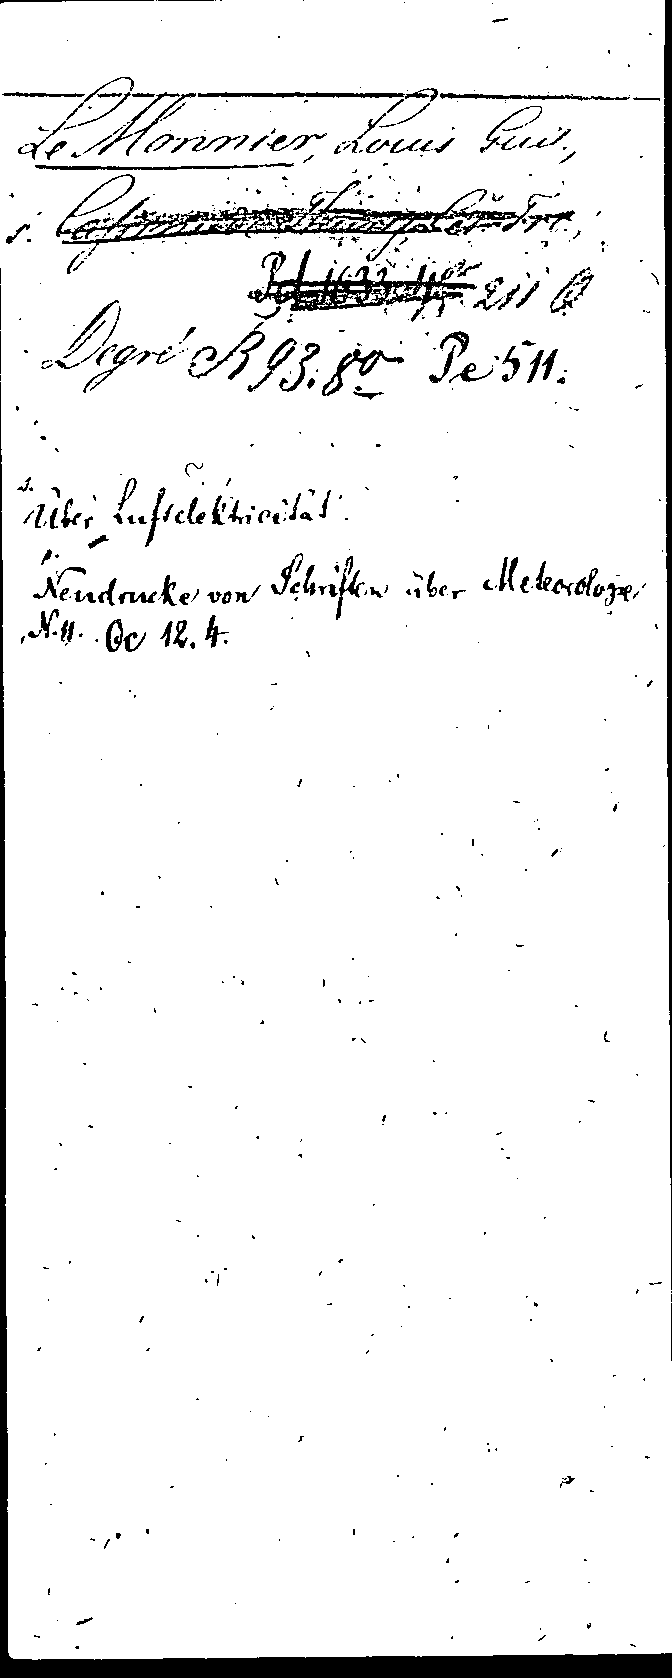 Le Monnier, Louis Guil.,
s. Cassini de Thury, Cés. Frc.,
211 Q
Degré R 93. 8º Pe 511.
s.
Über Luftelektricität.
s.
Neudrucke von Schriften über Meteorologie
N. 11. Oc 12. 4.